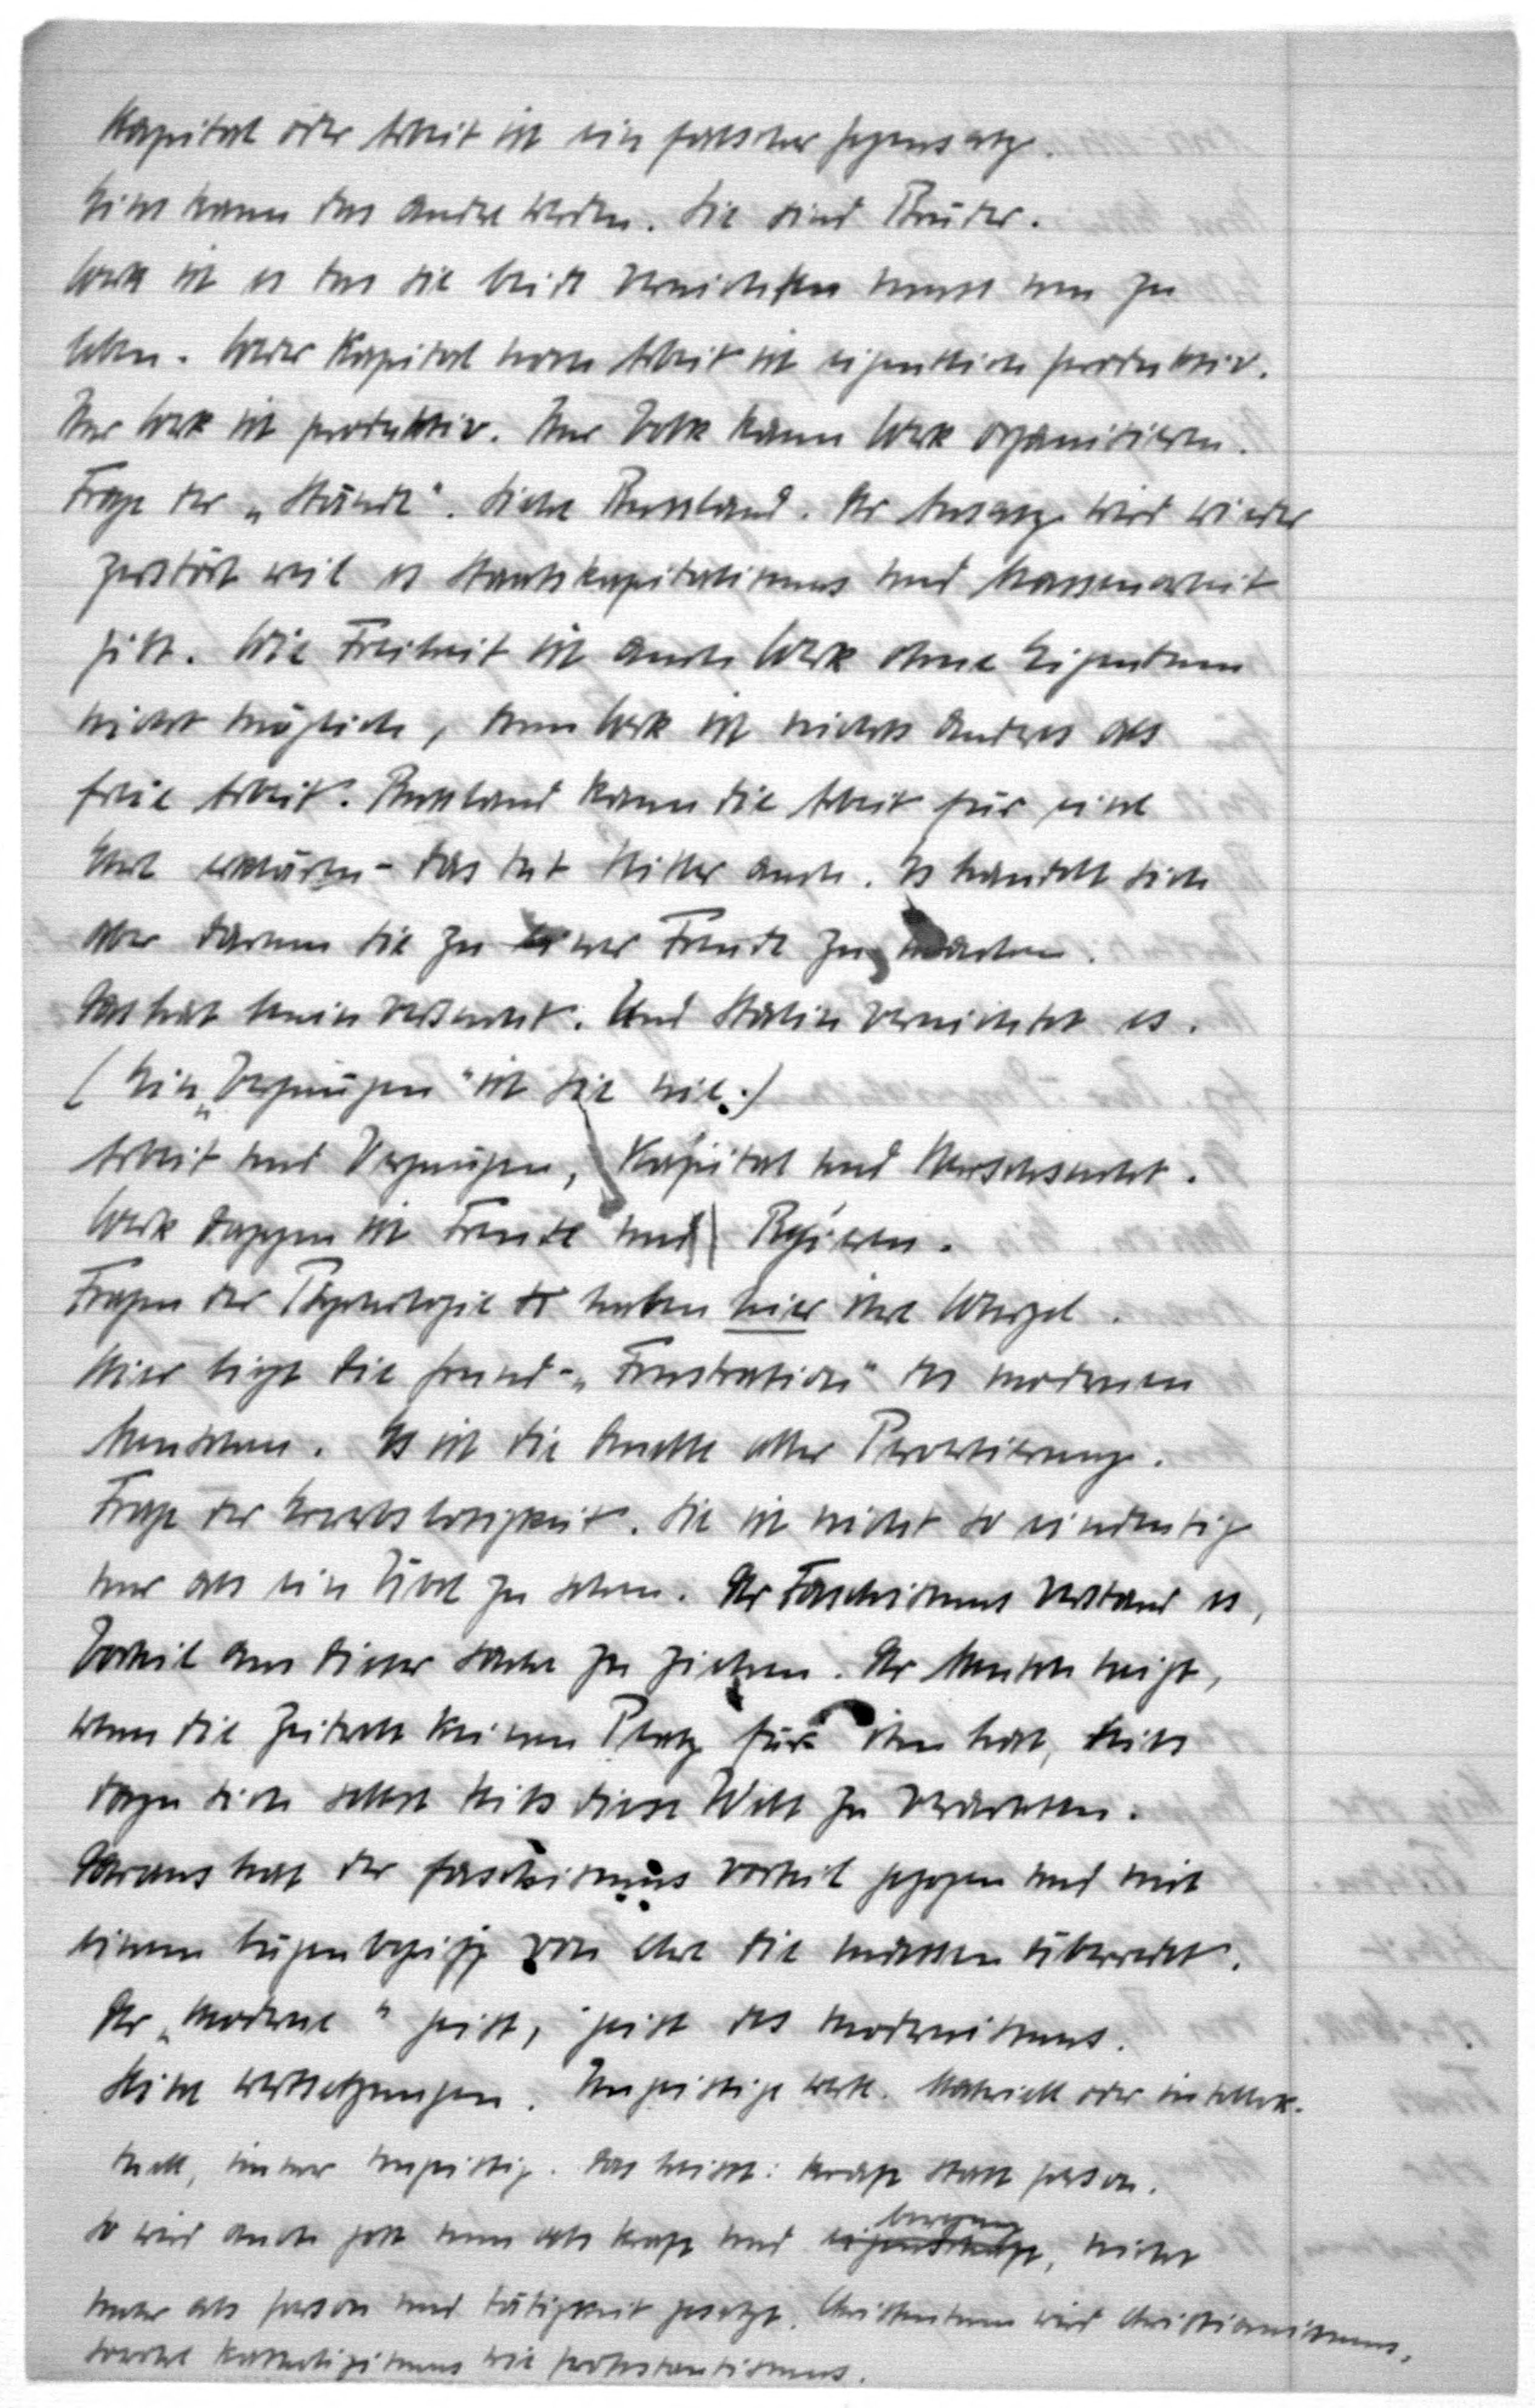 Kapital oder Arbeit ist ein falscher gegensatz.
Eines kann das andre werden. Sie sind Brüder.
Werk ist es das sie beide vernichten muss um zu
leben. Weder Kapital noch Arbeit ist eigentlich produktiv.
Nur Werk ist produktiv. Nur Volk kann Werk organisieren.
Frage der „Stände". Siehe Russland. Der Ansatz wird wieder
zerstört weil es Staatskapitalismus und Massenarbeit
gibt. Wie Freiheit ist auch Werk ohne Eigentum
nicht möglich, denn Werk ist nichts anderes als
freie Arbeit. Russland kann die Arbeit für eine
Ehre erklären – das tut Hitler auch. Es handelt sich
aber darum sie zu einer Freude zu machen.
Das hat Lenin versucht. Und Stalin vernichtet es.
(Ein „Vergnügen" ist sie nie.)
Arbeit und Vergnügen, Kapital und Herrschsucht.
Werk dagegen ist Freude und Regieren.
Fragen der Psychologie haben hier ihre Wurzel.
Hier liegt die grund-„Frustration" des modernen
Menschen. Es ist die Quelle aller Pervertierung.
Frage der Erwerbslosigkeit. Sie ist nicht so eindeutig
nur als ein Übel zu sehen. Der Faschismus verstand es,
Vorteil aus dieser Sache zu ziehen. Der Mensch neigt,
wenn die Zeitwelt keinen Platz für ihn hat, stets
dazu sich selbst statt diese Welt zu verachten.
Daraus hat der faschismus vorteil gezogen und mit
einem lügenbegriff von ehre die massen überredet.
Der „moderne" geist, geist des modernismus.
Seine wertsetzungen. Ungeistige werte. Materiell oder intellek-
tuell, immer ungeistig. Das heisst: kraft statt person.
So wird auch gott nun als kraft und bewegung, nicht
mehr als person und tätigkeit gesetzt. Christentum wird christianismus,
sowohl katholizismus wie protestantismus.